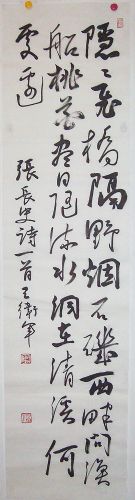 隱〻飛橋隔野烟石磯西畔問漁
船桃花盡日隨流水洞在清溪何
處邊
張長史詩一首王衛軍